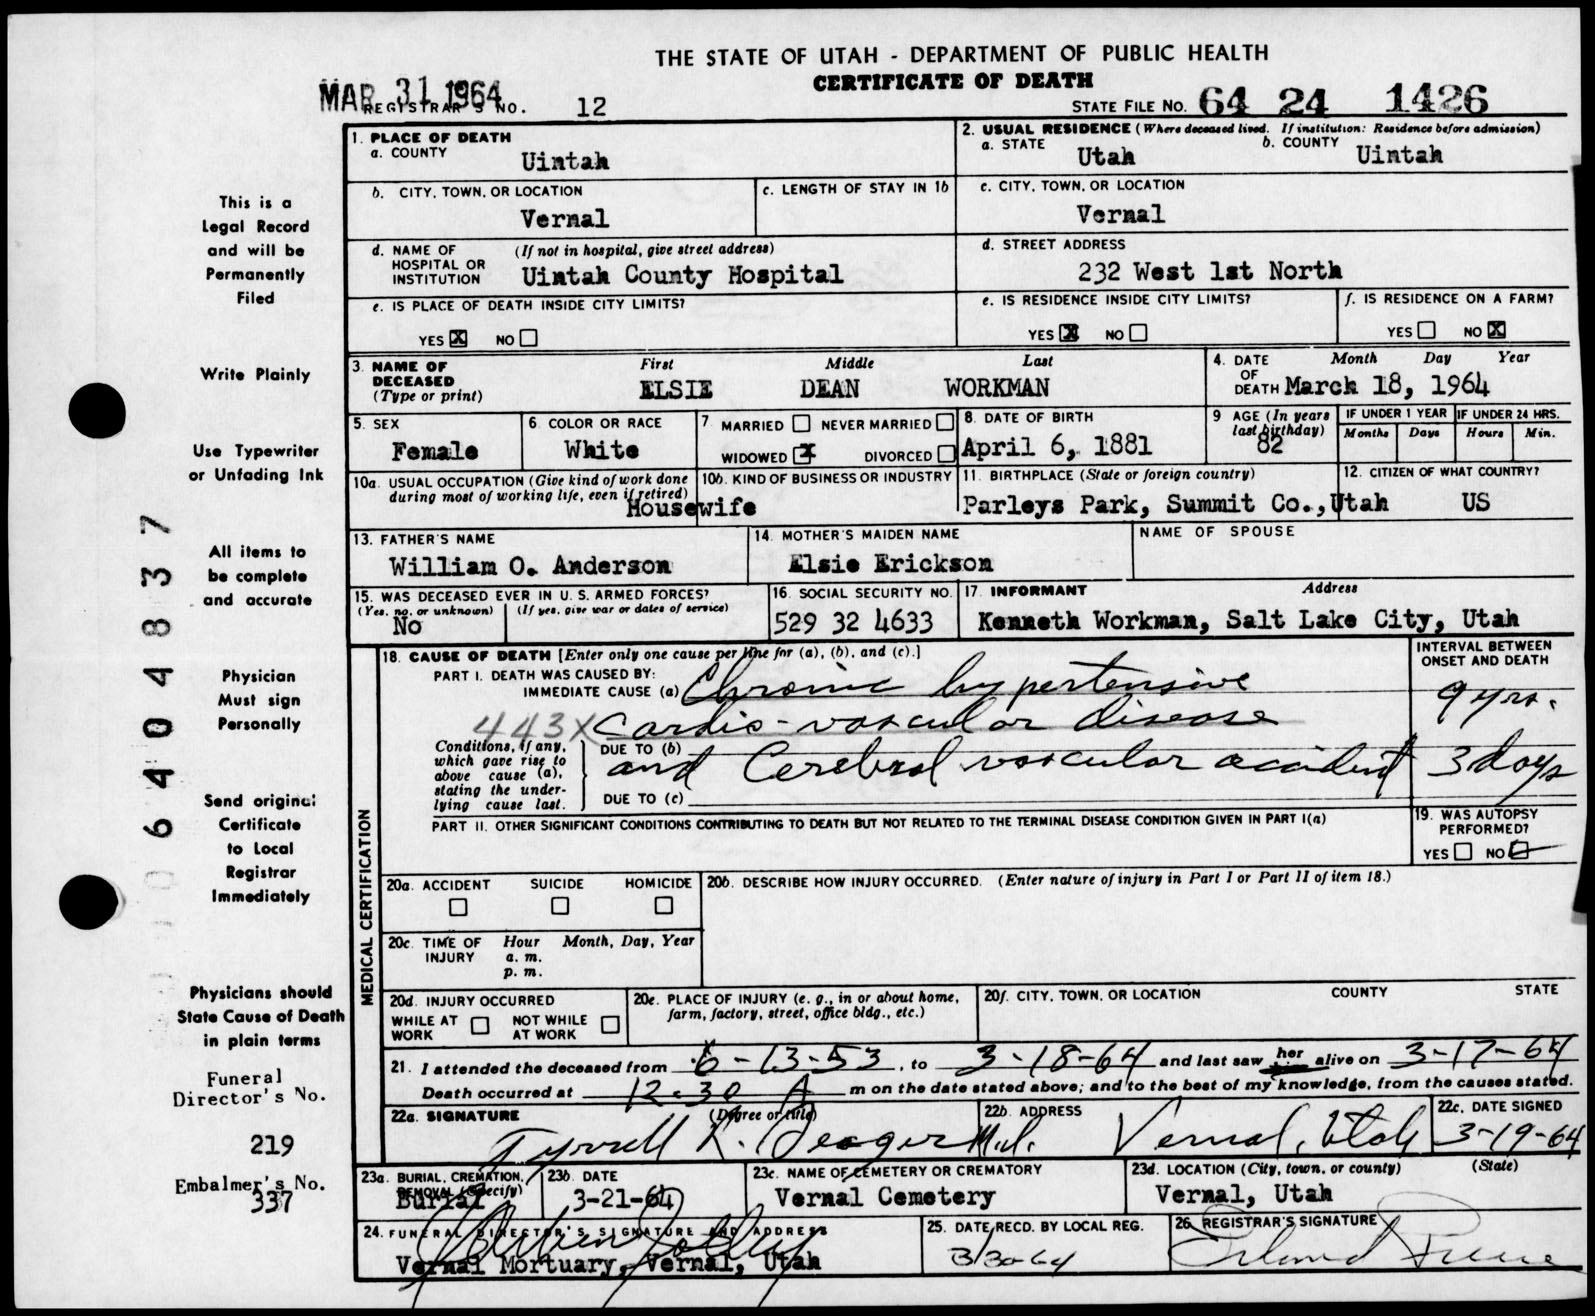 THE STATE OF UTAH - DEPARTMENT OF PUBLIC HEALTH
CERTIFICATE OF DEATH
MAR 31 1964
REGISTRAR'S NO. 12
STATE FILE NO. 64 24 1426
1. PLACE OF DEATH
a. COUNTY
Uintah
2. USUAL RESIDENCE (Where deceased lived. If institution: Residence before admission)
a. STATE
Utah
b. COUNTY
Uintah
b. CITY, TOWN, OR LOCATION
Vernal
c. LENGTH OF STAY IN 1b
c. CITY, TOWN, OR LOCATION
Vernal
d. NAME OF HOSPITAL OR INSTITUTION
(If not in hospital, give street address)
Uintah County Hospital
d. STREET ADDRESS
232 West 1st North
e. IS PLACE OF DEATH INSIDE CITY LIMITS?
YES X NO
e. IS RESIDENCE INSIDE CITY LIMITS?
YES X NO
f. IS RESIDENCE ON A FARM?
YES NO X
3. NAME OF DECEASED (Type or print)
First Middle Last
ELSIE DEAN WORKMAN
4. DATE OF DEATH
Month Day Year
March 18, 1964
5. SEX
Female
6. COLOR OR RACE
White
7. MARRIED NEVER MARRIED
WIDOWED X DIVORCED
8. DATE OF BIRTH
April 6, 1881
9 AGE (In years last birthday)
82
IF UNDER 1 YEAR
Months Days
IF UNDER 24 HRS.
Hours Min.
10a. USUAL OCCUPATION (Give kind of work done during most of working life, even if retired)
10b. KIND OF BUSINESS OR INDUSTRY
Housewife
11. BIRTHPLACE (State or foreign country)
Parleys Park, Summit Co., Utah
12. CITIZEN OF WHAT COUNTRY?
US
13. FATHER'S NAME
William O. Anderson
14. MOTHER'S MAIDEN NAME
Elsie Erickson
NAME OF SPOUSE
15. WAS DECEASED EVER IN U. S. ARMED FORCES?
(Yes, no, or unknown) (If yes, give war or dates of service)
No
16. SOCIAL SECURITY NO.
529 32 4633
17. INFORMANT Address
Kenneth Workman, Salt Lake City, Utah
MEDICAL CERTIFICATION
18. CAUSE OF DEATH [Enter only one cause per line for (a), (b), and (c).]
INTERVAL BETWEEN ONSET AND DEATH
PART I. DEATH WAS CAUSED BY:
IMMEDIATE CAUSE (a) Chronic hypertensive
9 yrs.
443X
Cardio-vascular disease
Conditions, if any, which gave rise to above cause (a), stating the underlying cause last.
DUE TO (b)
and Cerebral vascular accident
3 days
DUE TO (c)
PART II. OTHER SIGNIFICANT CONDITIONS CONTRIBUTING TO DEATH BUT NOT RELATED TO THE TERMINAL DISEASE CONDITION GIVEN IN PART I(a)
19. WAS AUTOPSY PERFORMED?
YES NO
20a. ACCIDENT SUICIDE HOMICIDE
20b. DESCRIBE HOW INJURY OCCURRED. (Enter nature of injury in Part I or Part II of item 18.)
20c. TIME OF INJURY
Hour Month, Day, Year
a. m.
p. m.
20d. INJURY OCCURRED
WHILE AT WORK NOT WHILE AT WORK
20e. PLACE OF INJURY (e. g., in or about home, farm, factory, street, office bldg., etc.)
20f. CITY, TOWN, OR LOCATION COUNTY STATE
21. I attended the deceased from 6-13-53, to 3-18-64 and last saw her alive on 3-17-64
Death occurred at 12:30 A m on the date stated above; and to the best of my knowledge, from the causes stated.
22a. SIGNATURE (Degree or title)
Tyrrell R. Seager M.D.
22b. ADDRESS
Vernal, Utah
22c. DATE SIGNED
3-19-64
23a. BURIAL, CREMATION, REMOVAL (Specify)
Burial
23b. DATE
3-21-64
23c. NAME OF CEMETERY OR CREMATORY
Vernal Cemetery
23d. LOCATION (City, town, or county) (State)
Vernal, Utah
24. FUNERAL DIRECTOR'S SIGNATURE AND ADDRESS
Vernal Mortuary, Vernal, Utah
25. DATE RECD. BY LOCAL REG.
3/30-64
26. REGISTRAR'S SIGNATURE
This is a
Legal Record
and will be
Permanently
Filed
Write Plainly
Use Typewriter
or Unfading Ink
All items to
be complete
and accurate
Physician
Must sign
Personally
Send original
Certificate
to Local
Registrar
Immediately
Physicians should
State Cause of Death
in plain terms
Funeral
Director's No.
219
Embalmer's No.
337
0 6404837